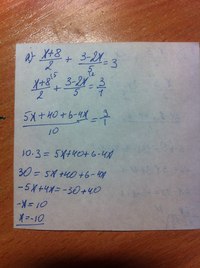 а) x+8/2 + 3-2x/5 = 3
x+8/2 \5 + 3-2x/5 \2 = 3/1
5x+40+6-4x/10 = 3/1
10·3 = 5x+40+6-4x
30 = 5x+40+6-4x
-5x+4x=-30+40
-x=10
x=-10